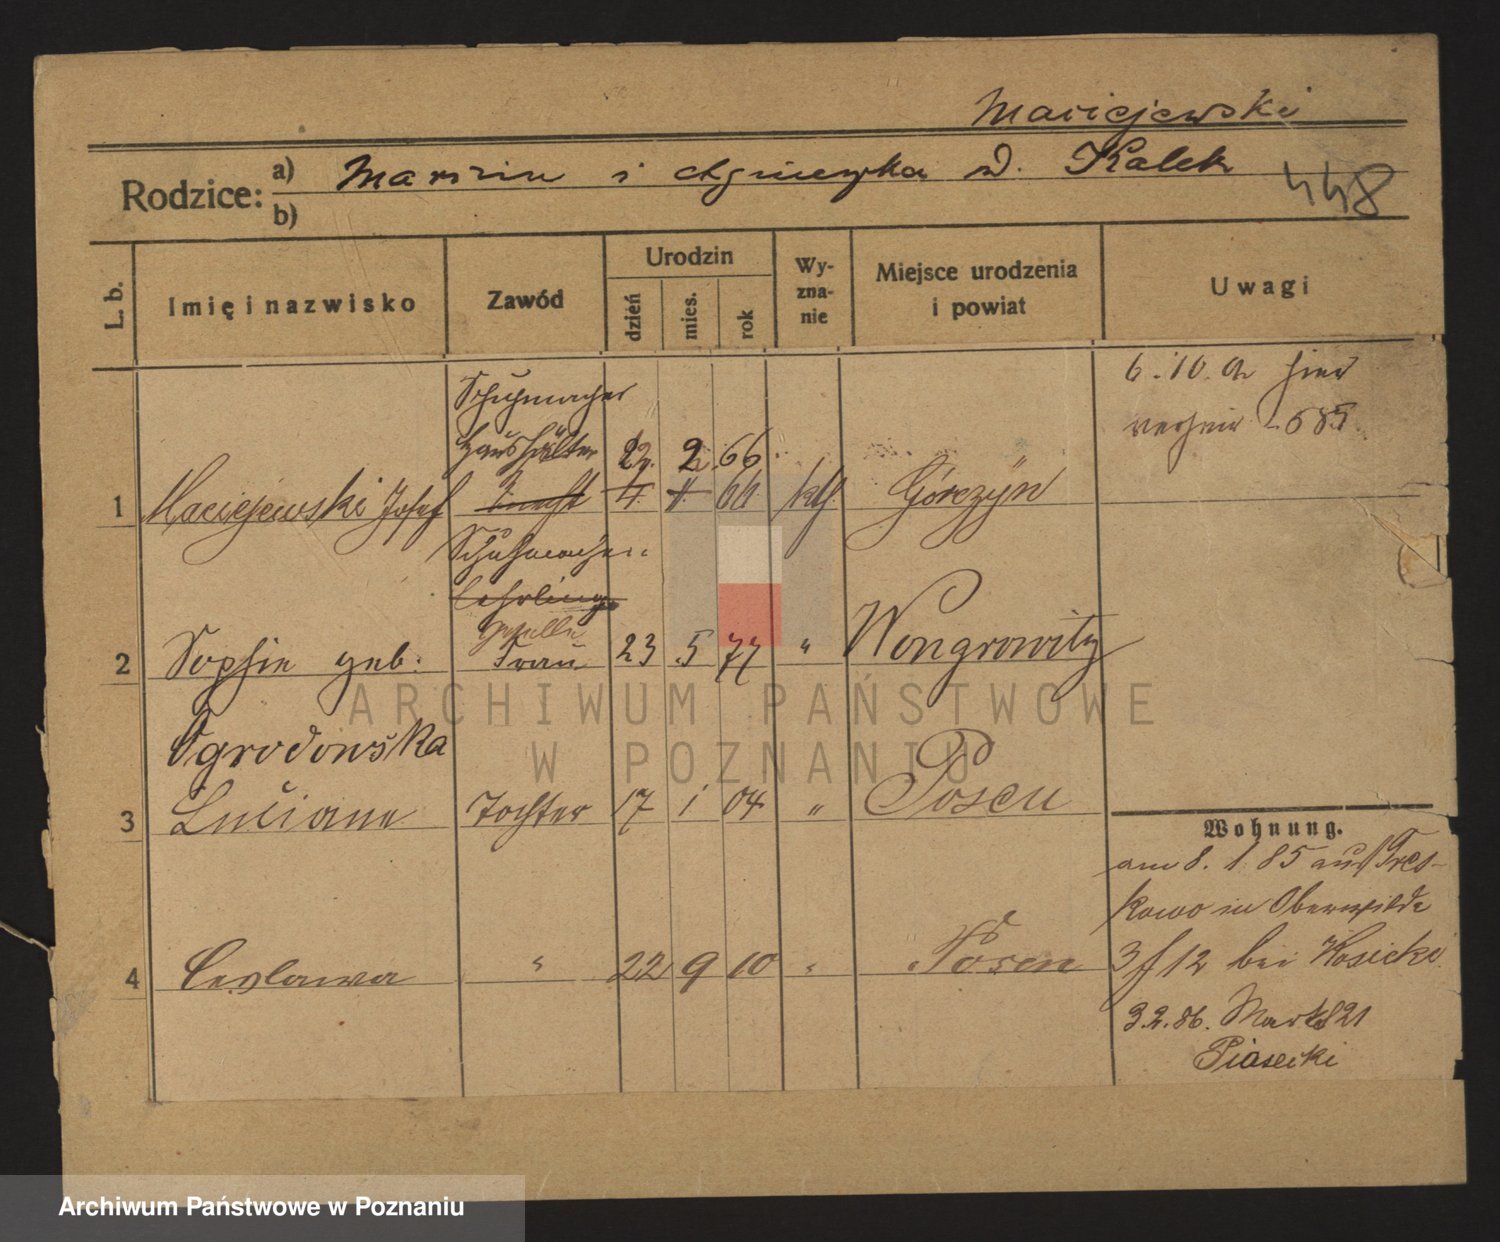 Maciejewski
Rodzice: a) Marcin i Agnieszka d. Kalek
b)
448
L. b. Imię i nazwisko Zawód Urodzin dzień mies. rok Wy-zna-nie Miejsce urodzenia i powiat Uwagi
6.10. hier
685
Schuhmacher
Haushälter 22. 2. 66
1 Maciejewski Josef Knecht 4. 66 kth Górczyn
Schuhmacher
Lehrling
Geselle
2 Sophie geb. Frau 23 5 77 " Wongrowitz
Ogrodowska
3 Luciane Tochter 17 1 04 " Posen
Wohnung.
am 8. 1. 85 aus Tres-
kowo in Oberwilda
4 Ceslawa " 22 9 10 " Posen
3/12 bei Kosicki
3.2.86. Markt 21
Piasecki
ARCHIWUM PAŃSTWOWE
W POZNANIU
Archiwum Państwowe w Poznaniu